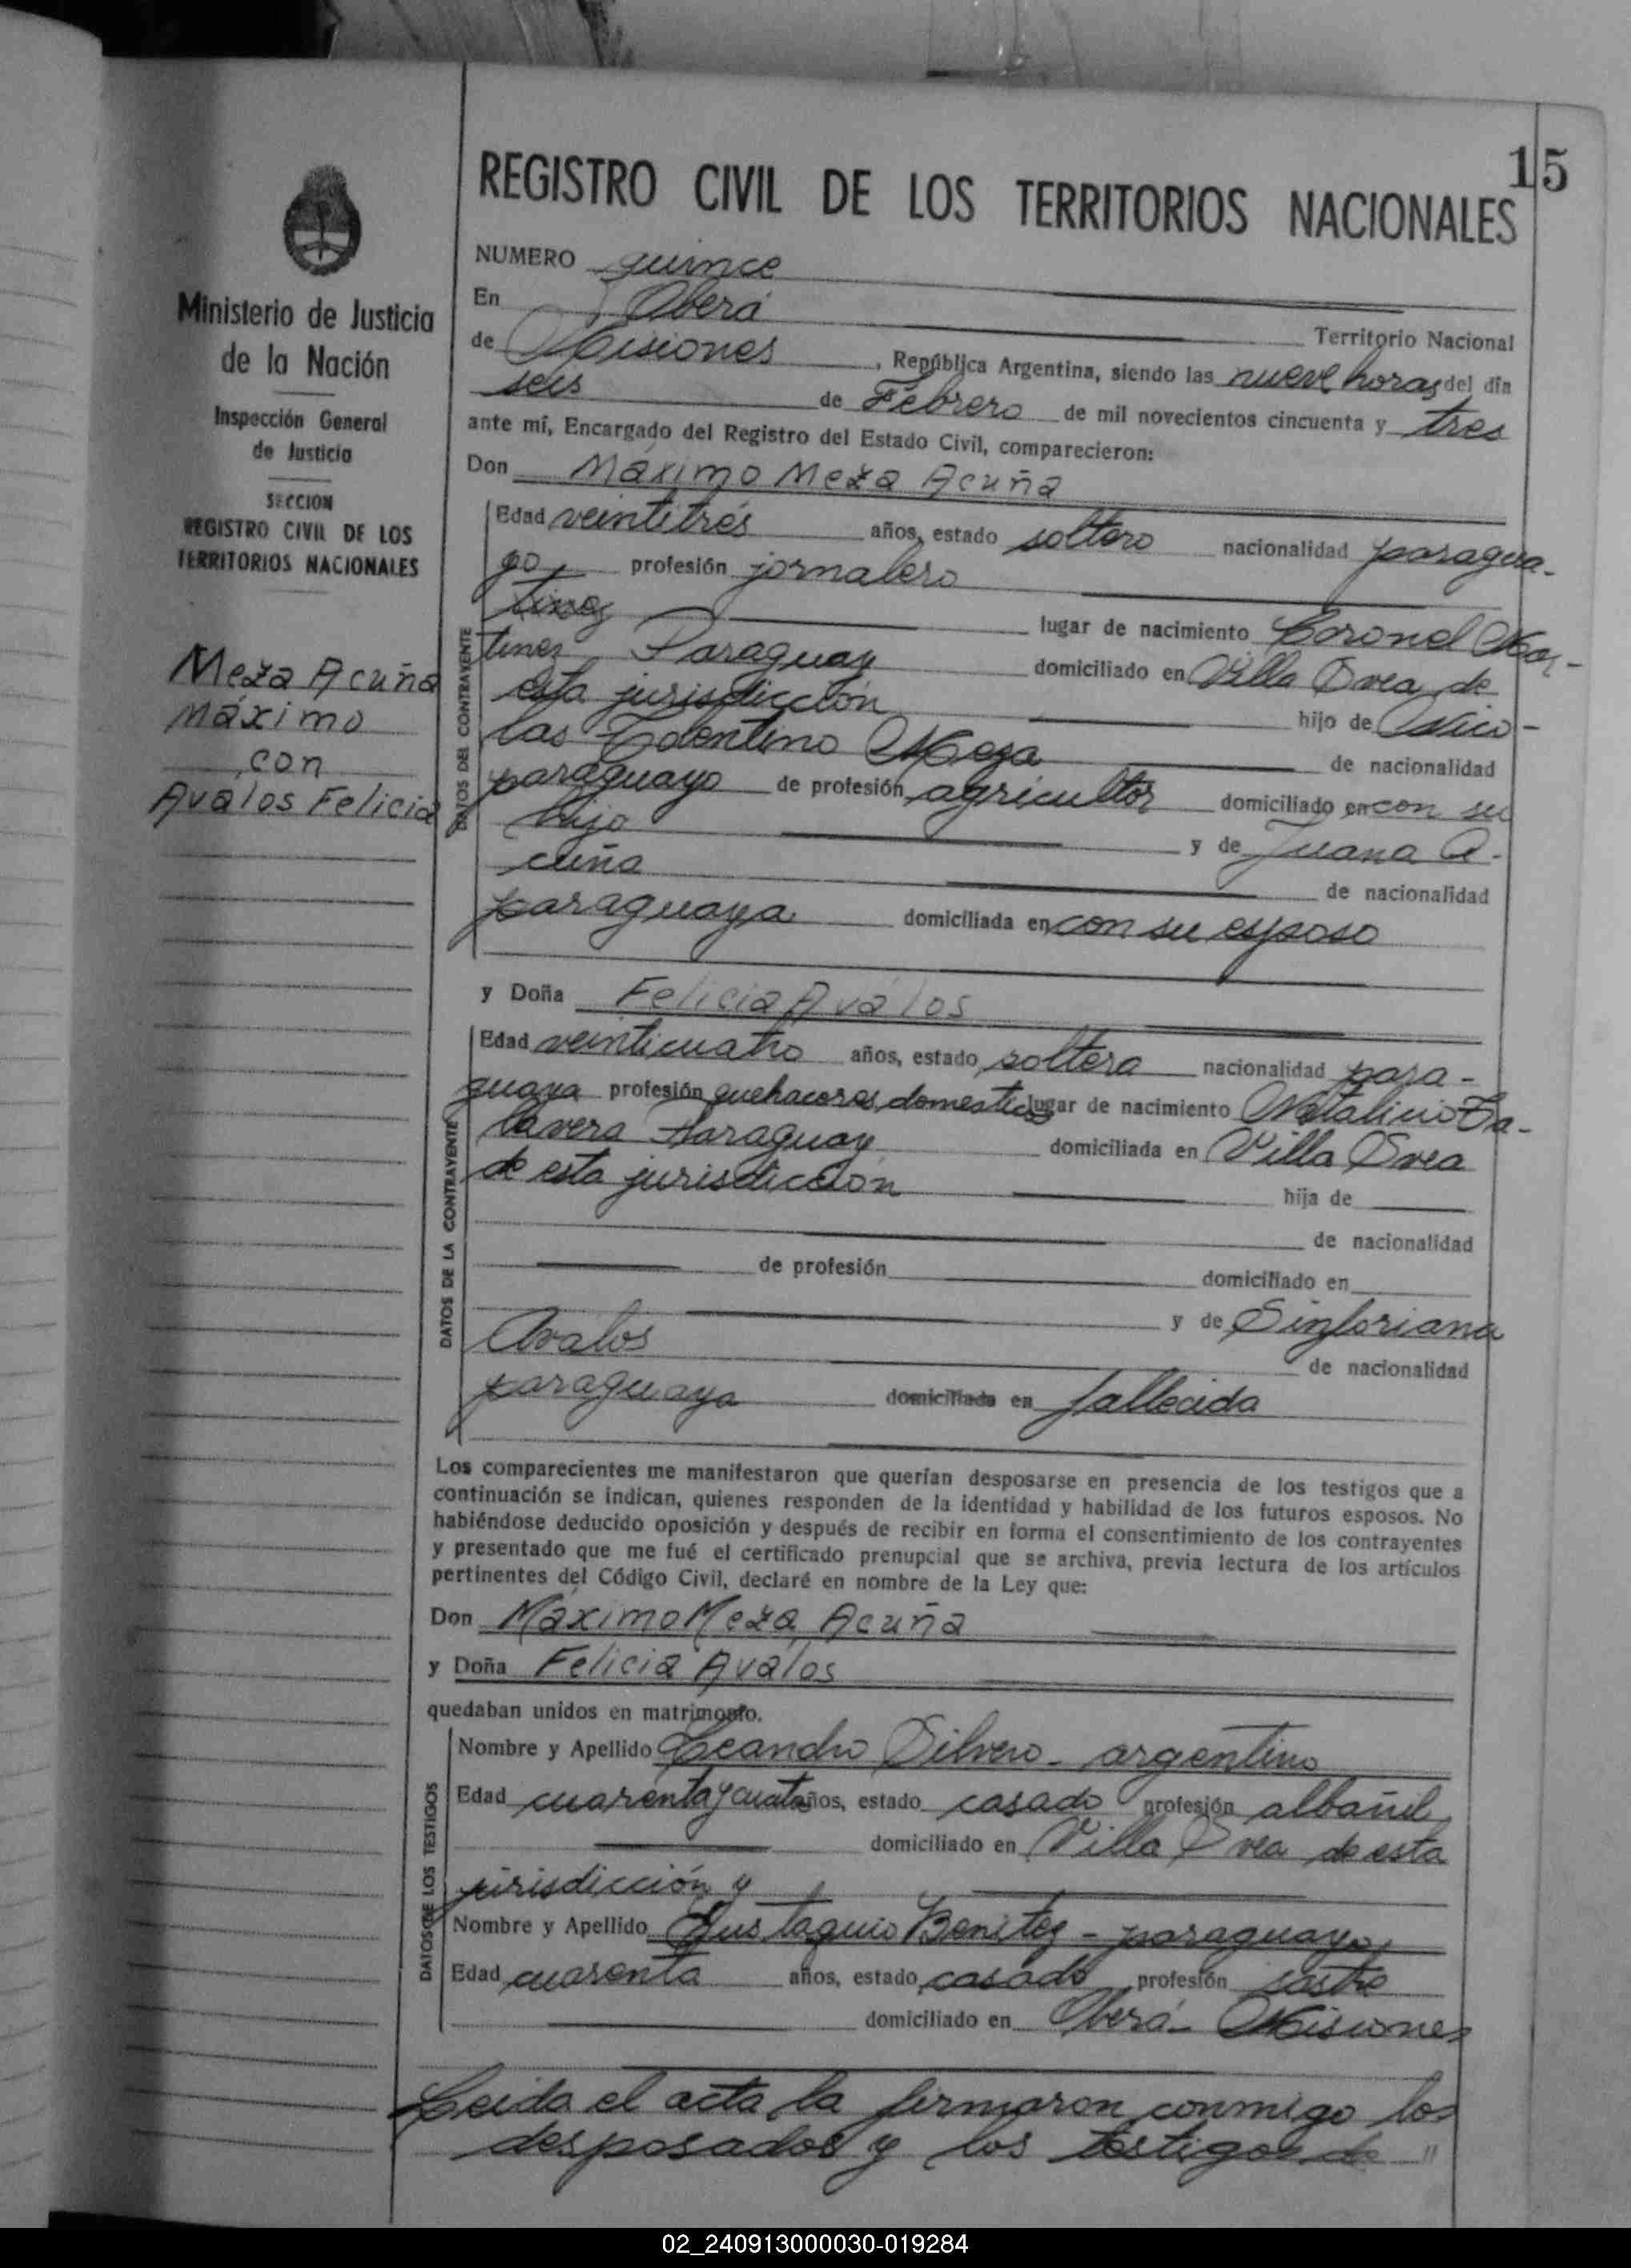 15
REGISTRO CIVIL DE LOS TERRITORIOS NACIONALES
Ministerio de Justicia
de la Nación
Inspección General
de Justicia
SECCION
REGISTRO CIVIL DE LOS
TERRITORIOS NACIONALES
Meza Acuña
Máximo
con
Avalos Felicia
NUMERO quince
En Oberá
Territorio Nacional
de Misiones, República Argentina, siendo las nueve horas del día
seis de Febrero de mil novecientos cincuenta y tres
ante mí, Encargado del Registro del Estado Civil, comparecieron:
Don Máximo Meza Acuña
DATOS DEL CONTRAYENTE
Edad veintitrés años, estado soltero nacionalidad paragua-
yo, profesión jornalero
lugar de nacimiento Coronel Mar-
tinez Paraguay domiciliado en Villa Svea de
esta jurisdicción hijo de Nico-
las Tolentino Meza de nacionalidad
paraguayo de profesión agricultor domiciliado en con su
hijo y de Juana A-
cuña de nacionalidad
paraguaya domiciliada en con su esposo
y Doña Felicia Avalos
DATOS DE LA CONTRAYENTE
Edad veinticuatro años, estado soltera nacionalidad para-
guaya profesión quehaceres domesticos lugar de nacimiento Natalicio Ta-
lavera Paraguay domiciliada en Villa Svea
de esta jurisdicción hija de
de nacionalidad
de profesión domiciliado en
y de Sinforiana
Avalos de nacionalidad
paraguaya domiciliada en fallecida
Los comparecientes me manifestaron que querían desposarse en presencia de los testigos que a
continuación se indican, quienes responden de la identidad y habilidad de los futuros esposos. No
habiéndose deducido oposición y después de recibir en forma el consentimiento de los contrayentes
y presentado que me fué el certificado prenupcial que se archiva, previa lectura de los artículos
pertinentes del Código Civil, declaré en nombre de la Ley que:
Don Máximo Meza Acuña
y Doña Felicia Avalos
quedaban unidos en matrimonio.
DATOS DE LOS TESTIGOS
Nombre y Apellido Leandro Silvero - argentino
Edad cuarenta y cuatro años, estado casado profesión albañil
domiciliado en Villa Svea de esta
jurisdicción y
Nombre y Apellido Eustaquio Benitez - paraguayo,
Edad cuarenta años, estado casado profesión sastre
domiciliado en Oberá - Misiones
Leida el acta la firmaron conmigo los
desposados y los testigos de "
02_240913000030-019284